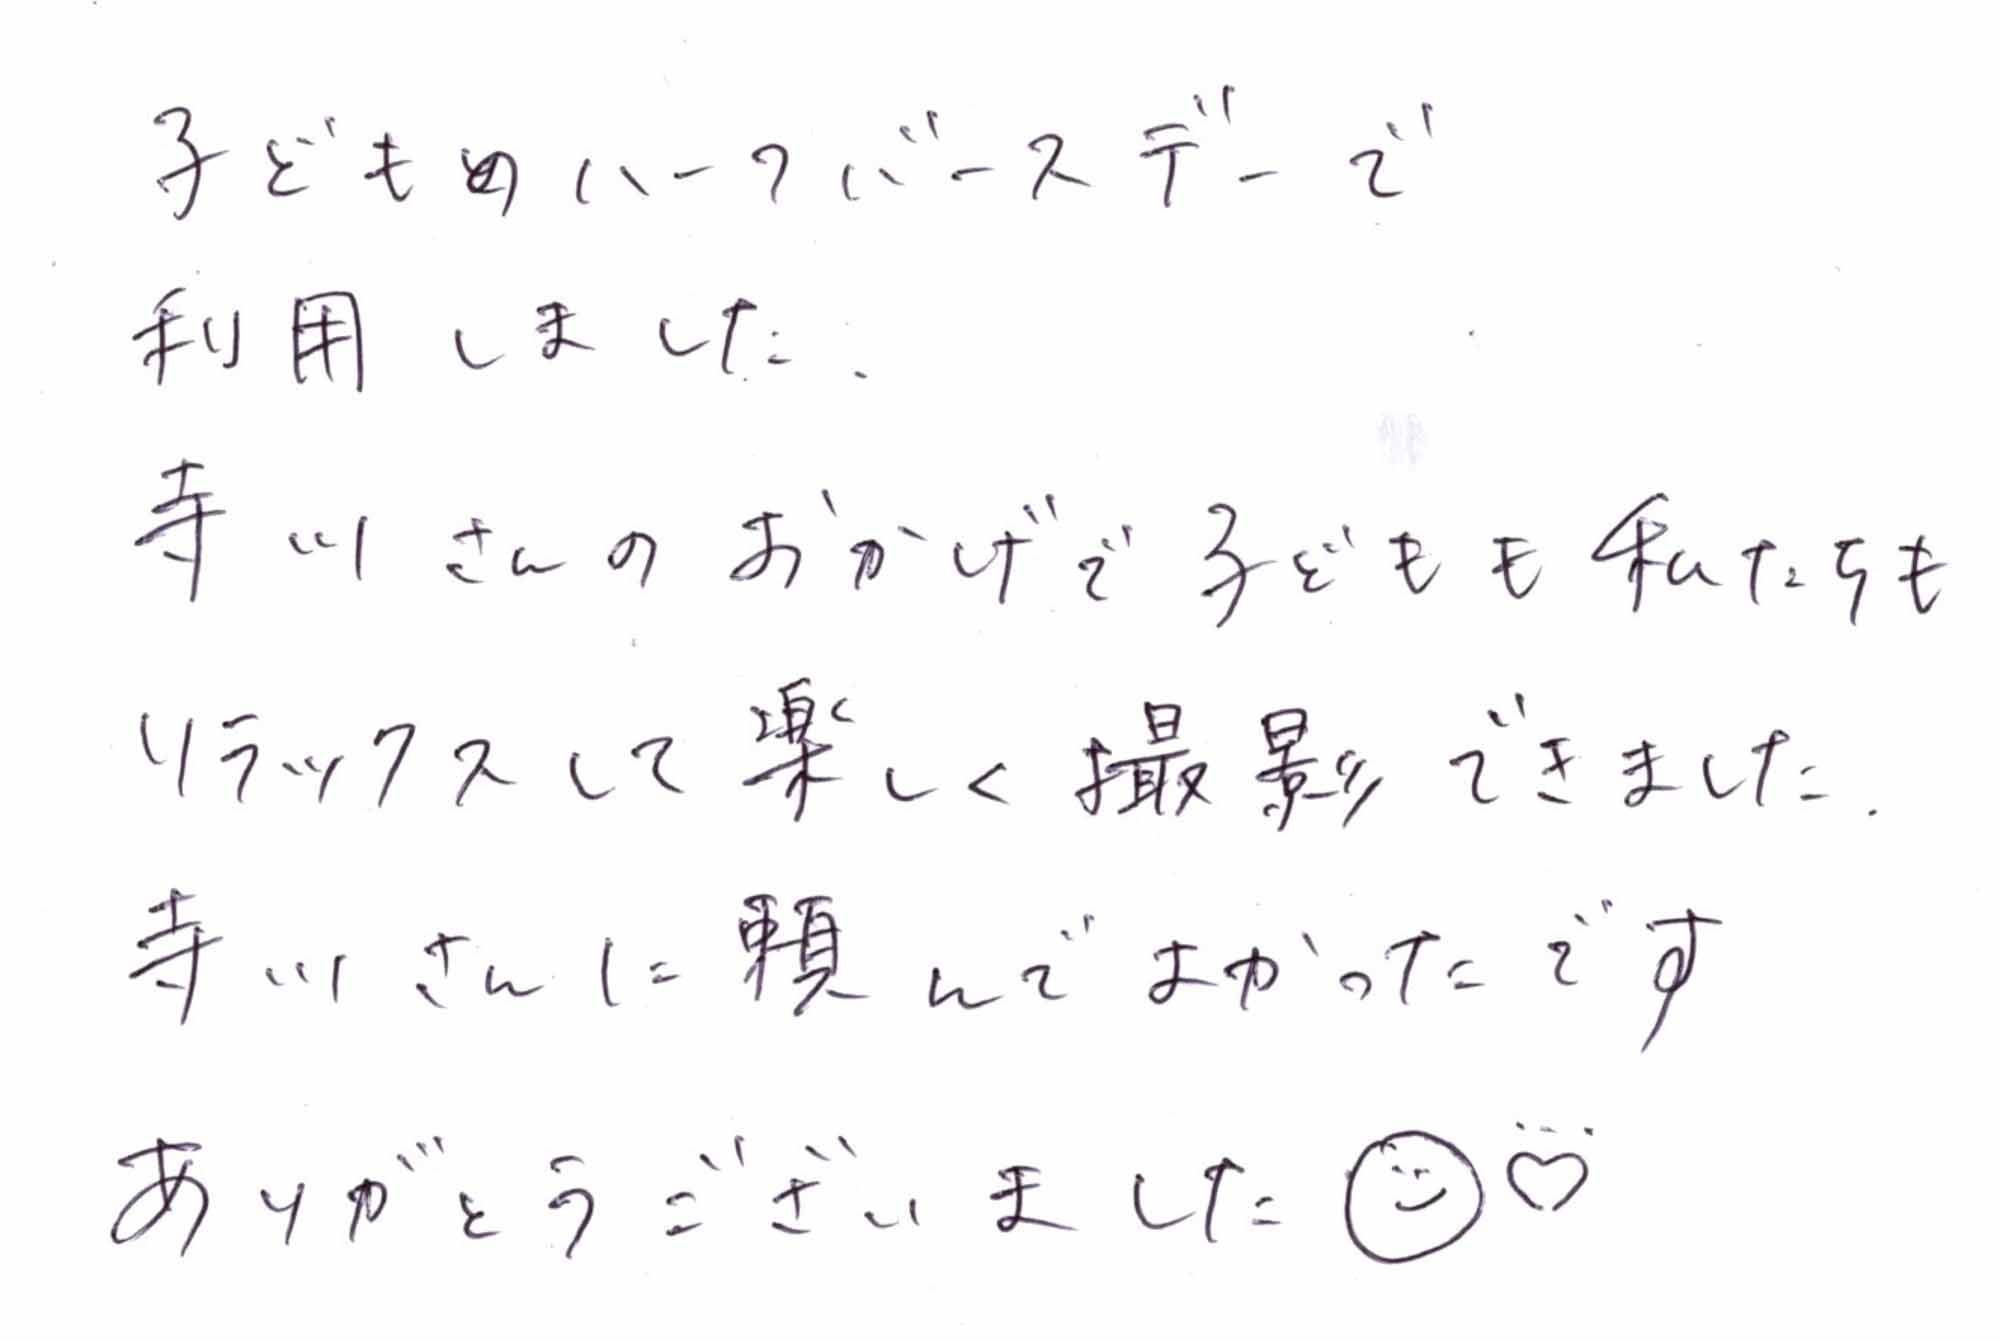 子どものハーフバースデーで
利用しました.
寺川さんのおかげで子どもも私たちも
リラックスして楽しく撮影できました.
寺川さんに頼んでよかったです
ありがとうございました